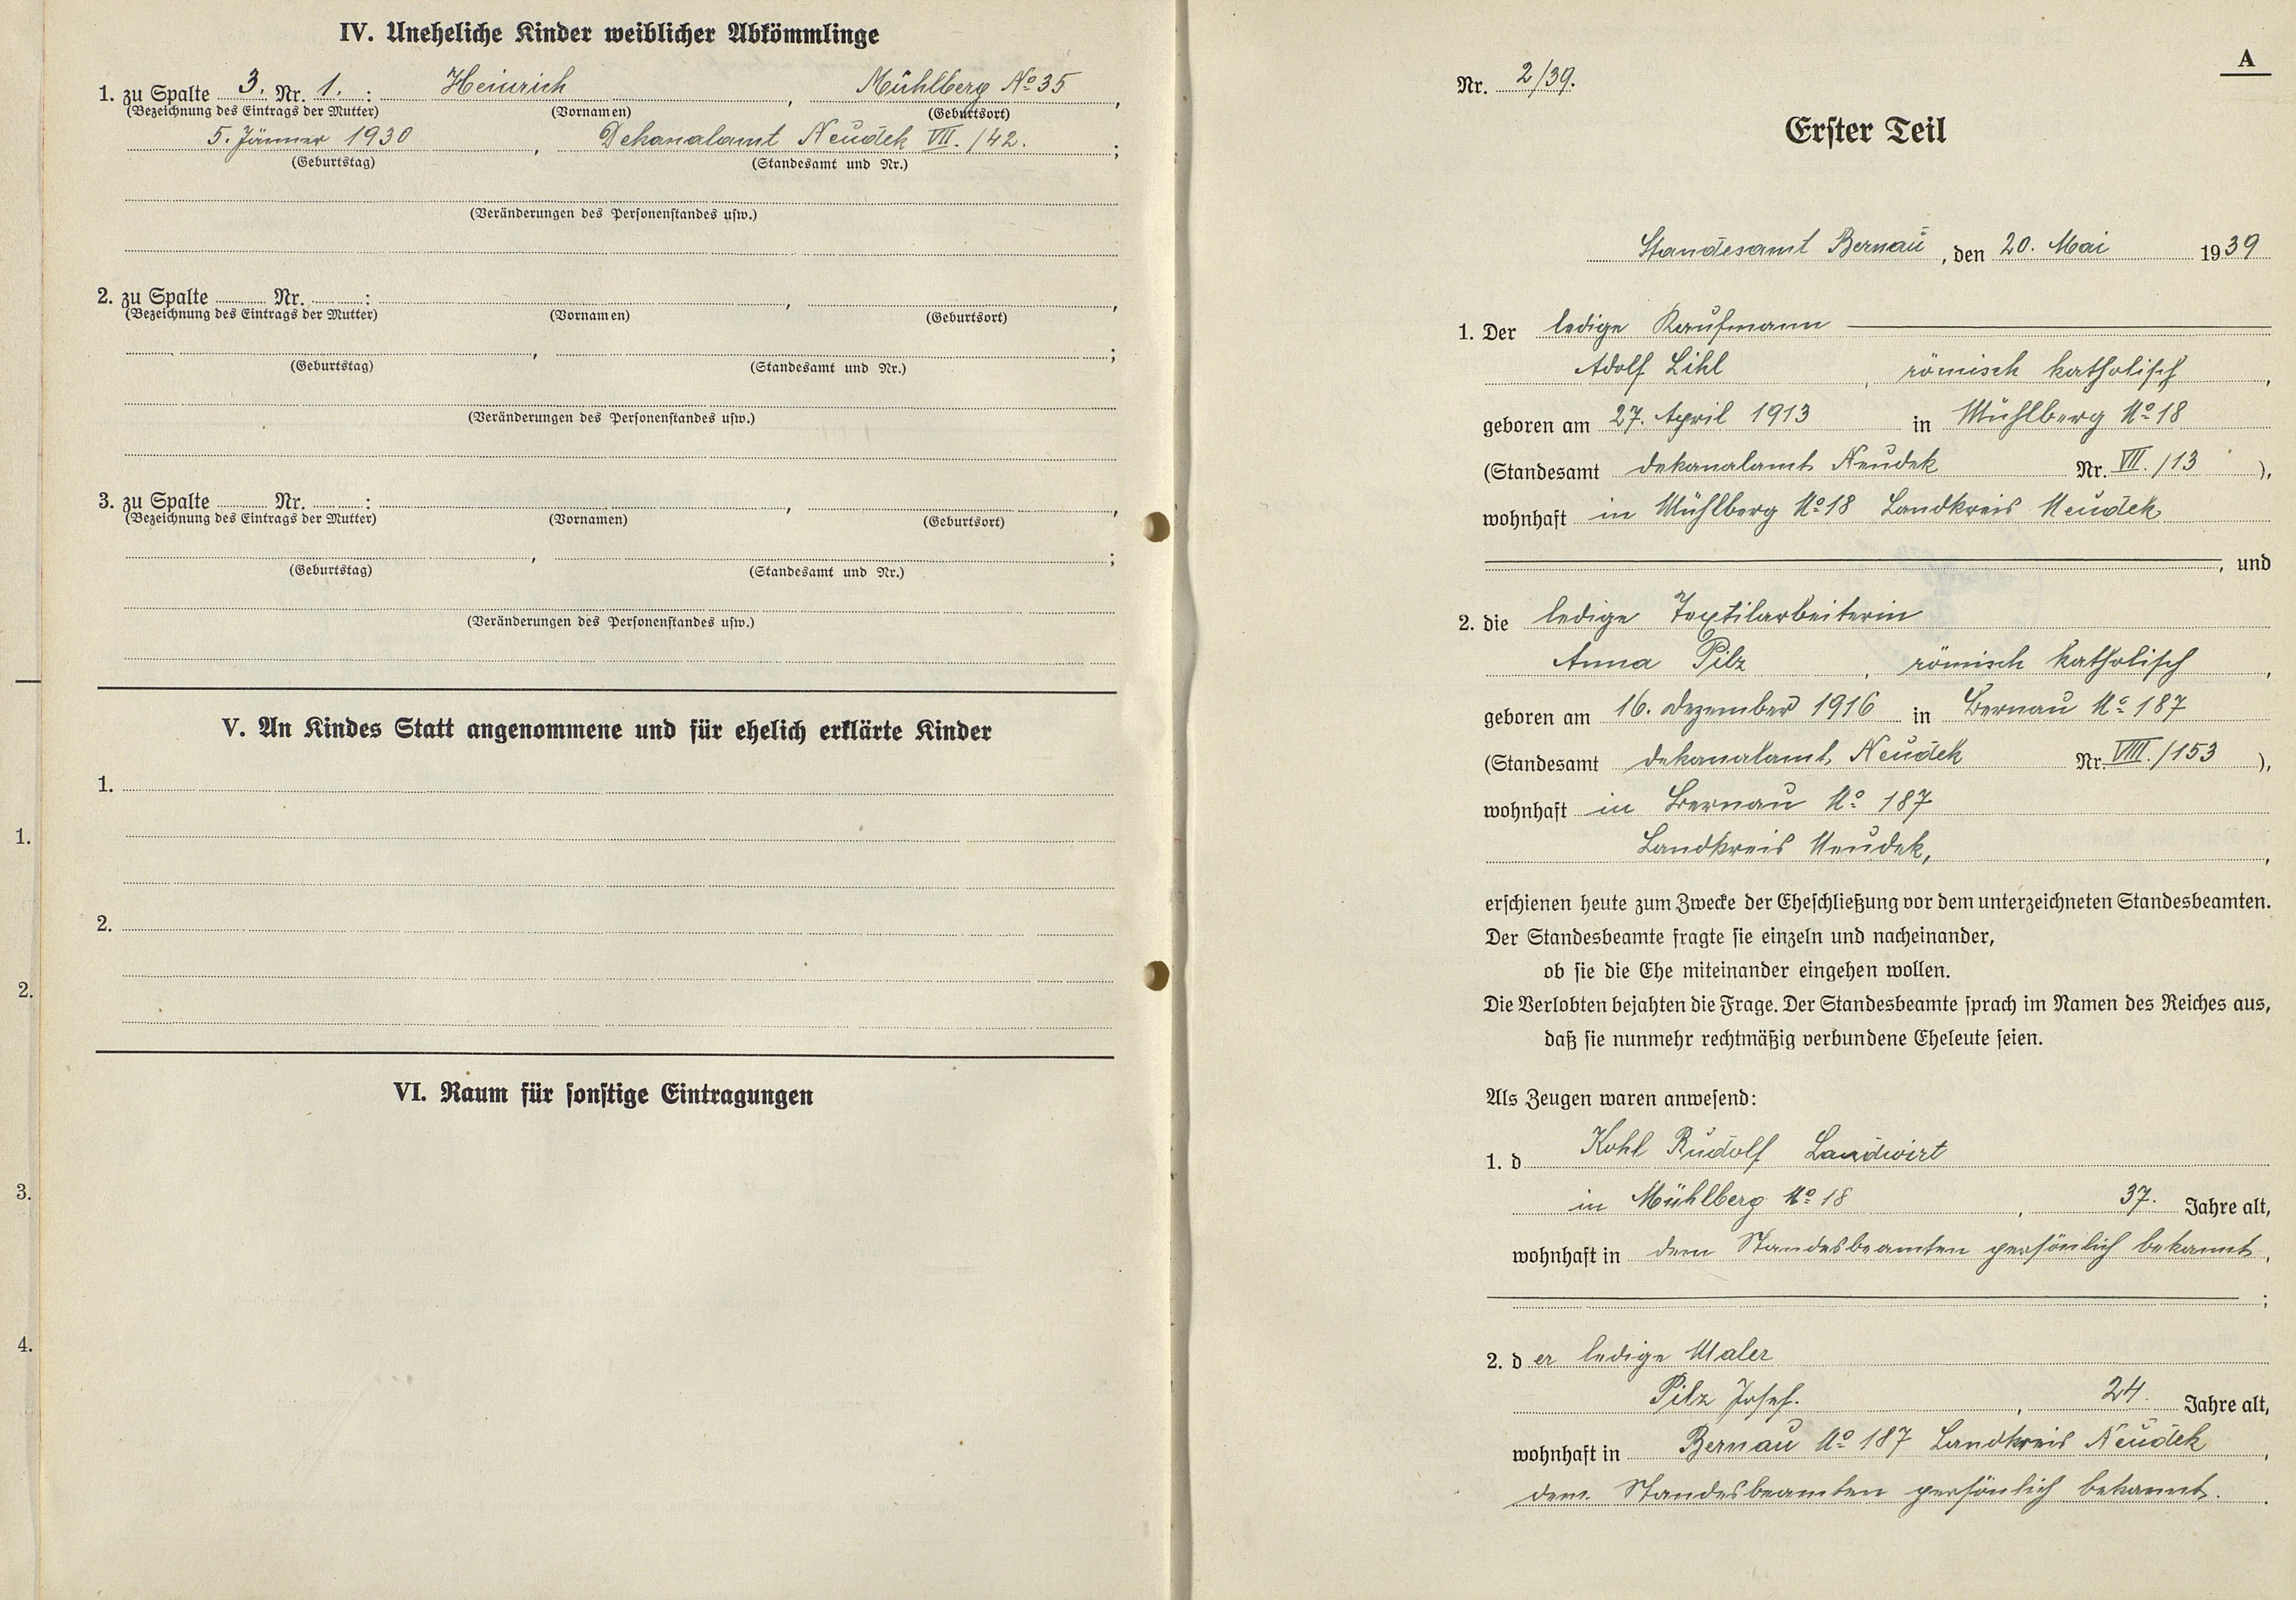 IV. Uneheliche Kinder weiblicher Abkömmlinge
1. zu Spalte 3. Nr. 1. : Heinrich, Mühlberg No 35,
(Bezeichnung des Eintrags der Mutter) (Vornamen) (Geburtsort)
5. Jänner 1930, Dekanalamt Neudek VII./42. ;
(Geburtstag) (Standesamt und Nr.)
(Veränderungen des Personenstandes usw.)
2. zu Spalte Nr. : , ,
(Bezeichnung des Eintrags der Mutter) (Vornamen) (Geburtsort)
, ;
(Geburtstag) (Standesamt und Nr.)
(Veränderungen des Personenstandes usw.)
3. zu Spalte Nr. : , ,
(Bezeichnung des Eintrags der Mutter) (Vornamen) (Geburtsort)
, ;
(Geburtstag) (Standesamt und Nr.)
(Veränderungen des Personenstandes usw.)
V. An Kindes Statt angenommene und für ehelich erklärte Kinder
1.
2.
VI. Raum für sonstige Eintragungen
1.
2.
3.
4.
A
Nr. 2/39.
Erster Teil
Standesamt Bernau, den 20. Mai 1939
1. Der ledige Kaufmann
Adolf Lihl, römisch katholisch,
geboren am 27. April 1913 in Mühlberg No 18
(Standesamt Dekanalamt Neudek Nr. VII./13 ),
wohnhaft in Mühlberg No 18 Landkreis Neudek
, und
2. die ledige Textilarbeiterin
Anna Pilz, römisch katholisch,
geboren am 16. Dezember 1916 in Bernau No 187
(Standesamt Dekanalamt Neudek Nr. VIII./153 ),
wohnhaft in Bernau No 187
Landkreis Neudek, ,
erschienen heute zum Zwecke der Eheschließung vor dem unterzeichneten Standesbeamten.
Der Standesbeamte fragte sie einzeln und nacheinander,
ob sie die Ehe miteinander eingehen wollen.
Die Verlobten bejahten die Frage. Der Standesbeamte sprach im Namen des Reiches aus,
daß sie nunmehr rechtmäßig verbundene Eheleute seien.
Als Zeugen waren anwesend:
1. d Kohl Rudolf Landwirt
in Mühlberg No 18, 37. Jahre alt,
wohnhaft in dem Standesbeamten persönlich bekannt,
;
2. der ledige Maler
Pilz Josef. , 24. Jahre alt,
wohnhaft in Bernau No 187 Landkreis Neudek,
dem Standesbeamten persönlich bekannt. .